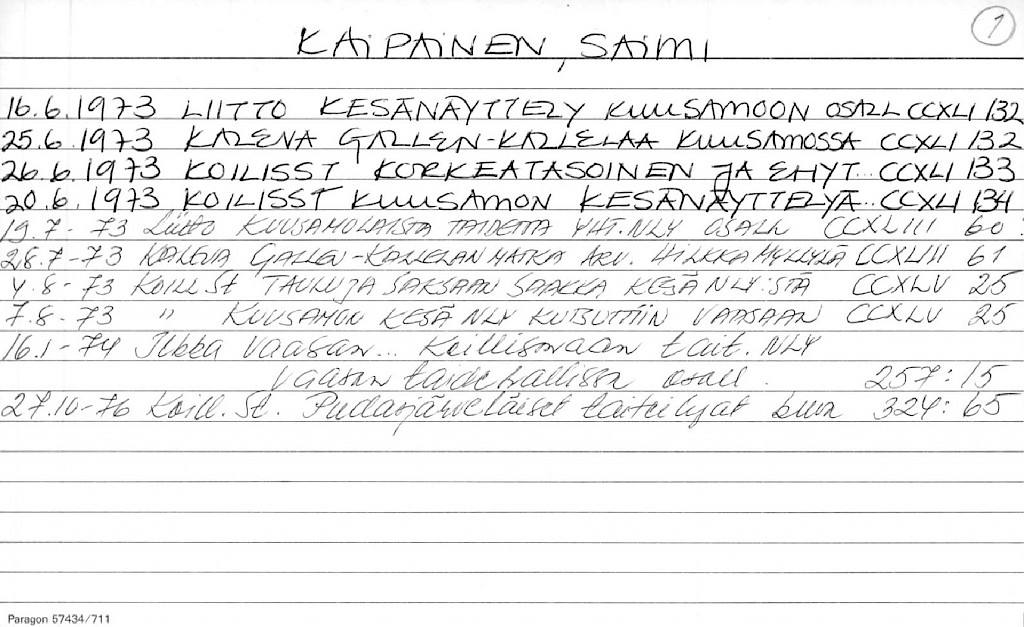 1
KAIPAINEN, SAIMI
16.6.1973 LIITTO KESÄNÄYTTELY KUUSAMOON OSALL CCXLI/132
25.6.1973 KALEVA GALLEN-KALLELAA KUUSAMOSSA CCXLI/132
26.6.1973 KOILISST KORKEATASOINEN JA EHYT... CCXLI/133
20.6.1973 KOILISST KUUSAMON KESÄNÄYTTELYÄ.. CCXLI/134
19.7-73 Liitto KUUSAMOLAISTA TAIDETTA YHT.NLY OSALL CCXLIII 60
28.7-73 KALEVA GALLEN-KALLELAN MATKA ARV. HILKKA MYLLYLÄ CCXLIII 61
4.8-73 KOILL St TAULUJA SAKSAAN SAAKKA KESÄ NLY:STÄ CCXLV 25
7.8-73 " KUUSAMON KESÄ NLY KUTSUTTIIN VAASAAN CCXLV 25
16.1-74 Ilkka Vaasan... Koillismaan tait. NLY
Vaasan taidehallissa osall. 257:15
27.10-76 Koill. St. Pudasjärveläiset taiteilijat 324:65
Paragon 57434/711